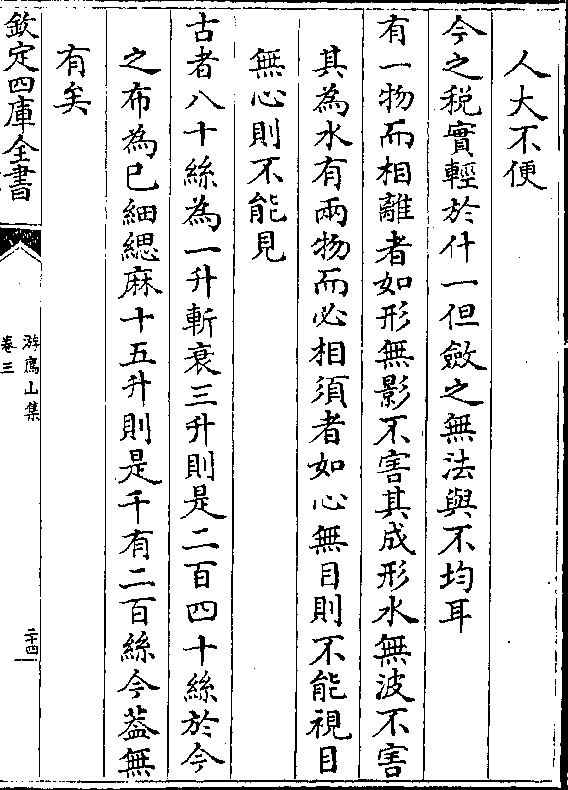 人大不便
今之税實輕於什一但斂之無法與不均耳
有一物而相離者如形無影不害其成形水無波不害
其為水有兩物而必相須者如心無目則不能視目
無心則不能見
古者八十絲為一升斬衰三升則是二百四十絲於今
之布為已細緦麻十五升則是千有二百絲今葢無
有矣
欽定四庫全書
游廌山集
卷三
二十四